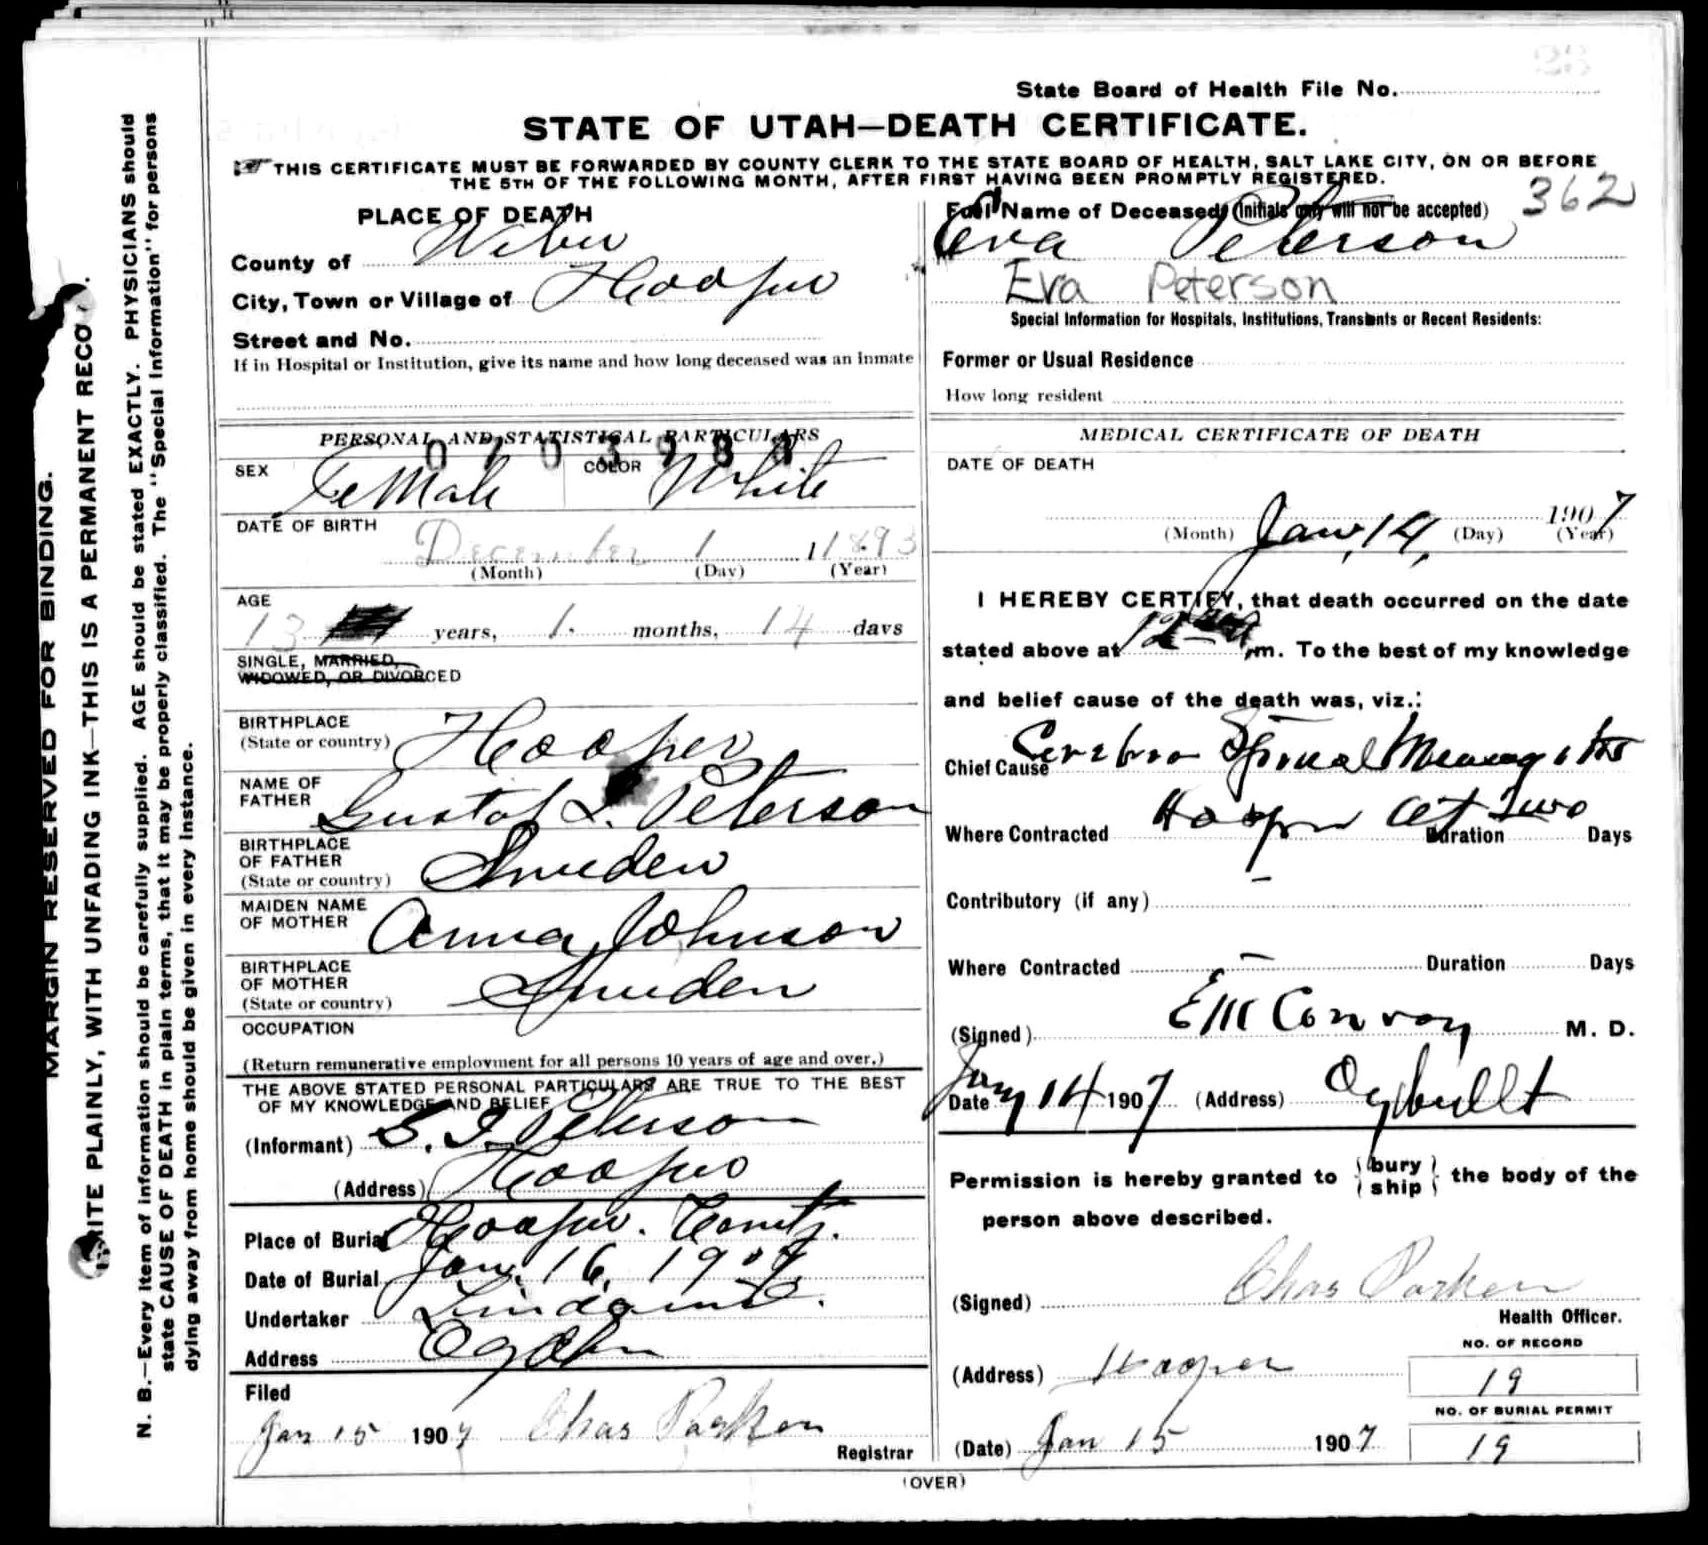 State Board of Health File No.
STATE OF UTAH—DEATH CERTIFICATE.
THIS CERTIFICATE MUST BE FORWARDED BY COUNTY CLERK TO THE STATE BOARD OF HEALTH, SALT LAKE CITY, ON OR BEFORE
THE 5TH OF THE FOLLOWING MONTH, AFTER FIRST HAVING BEEN PROMPTLY REGISTERED.
MARGIN RESERVED FOR BINDING.
WRITE PLAINLY, WITH UNFADING INK—THIS IS A PERMANENT RECO
N. B.—Every item of information should be carefully supplied. AGE should be stated EXACTLY. PHYSICIANS should
state CAUSE OF DEATH in plain terms, that it may be properly classified. The "Special Information" for persons
dying away from home should be given in every instance.
PLACE OF DEATH
County of Weber
City, Town or Village of Hooper
Street and No.
If in Hospital or Institution, give its name and how long deceased was an inmate
PERSONAL AND STATISTICAL PARTICULARS
SEX FeMale COLOR White
DATE OF BIRTH December 1 1893
(Month) (Day) (Year)
AGE
13 years, 1 months, 14 days
SINGLE, MARRIED,
WIDOWED, OR DIVORCED
BIRTHPLACE
(State or country) Hooper
NAME OF
FATHER Gustof L. Peterson
BIRTHPLACE
OF FATHER
(State or country) Sweden
MAIDEN NAME
OF MOTHER Anna Johnson
BIRTHPLACE
OF MOTHER
(State or country) Sweden
OCCUPATION
(Return remunerative employment for all persons 10 years of age and over.)
THE ABOVE STATED PERSONAL PARTICULARS ARE TRUE TO THE BEST
OF MY KNOWLEDGE AND BELIEF
(Informant) Peterson
(Address) Hooper
Place of Burial Hooper
Date of Burial Jan. 16, 1907
Undertaker
Address Ogden
Filed
Jan 15 1907 Chas Parker
Registrar
Full Name of Deceased (Initials only will not be accepted) 362
Eva Peterson
Eva Peterson
Special Information for Hospitals, Institutions, Transients or Recent Residents:
Former or Usual Residence
How long resident
MEDICAL CERTIFICATE OF DEATH
DATE OF DEATH
Jan, 14, 1907
(Month) (Day) (Year)
I HEREBY CERTIFY, that death occurred on the date
stated above at 12 m. To the best of my knowledge
and belief cause of the death was, viz.:
Chief Cause Cerebro Spinal Meningitis
Where Contracted Hooper Duration Two Days
Contributory (if any) –
Where Contracted – Duration Days
(Signed) E M Conroy M. D.
Date Jany 14 1907 (Address)
Permission is hereby granted to bury ship the body of the
person above described.
(Signed) Chas Parker
Health Officer.
(Address) Hooper
NO. OF RECORD
19
NO. OF BURIAL PERMIT
(Date) Jan 15 1907
19
(OVER)